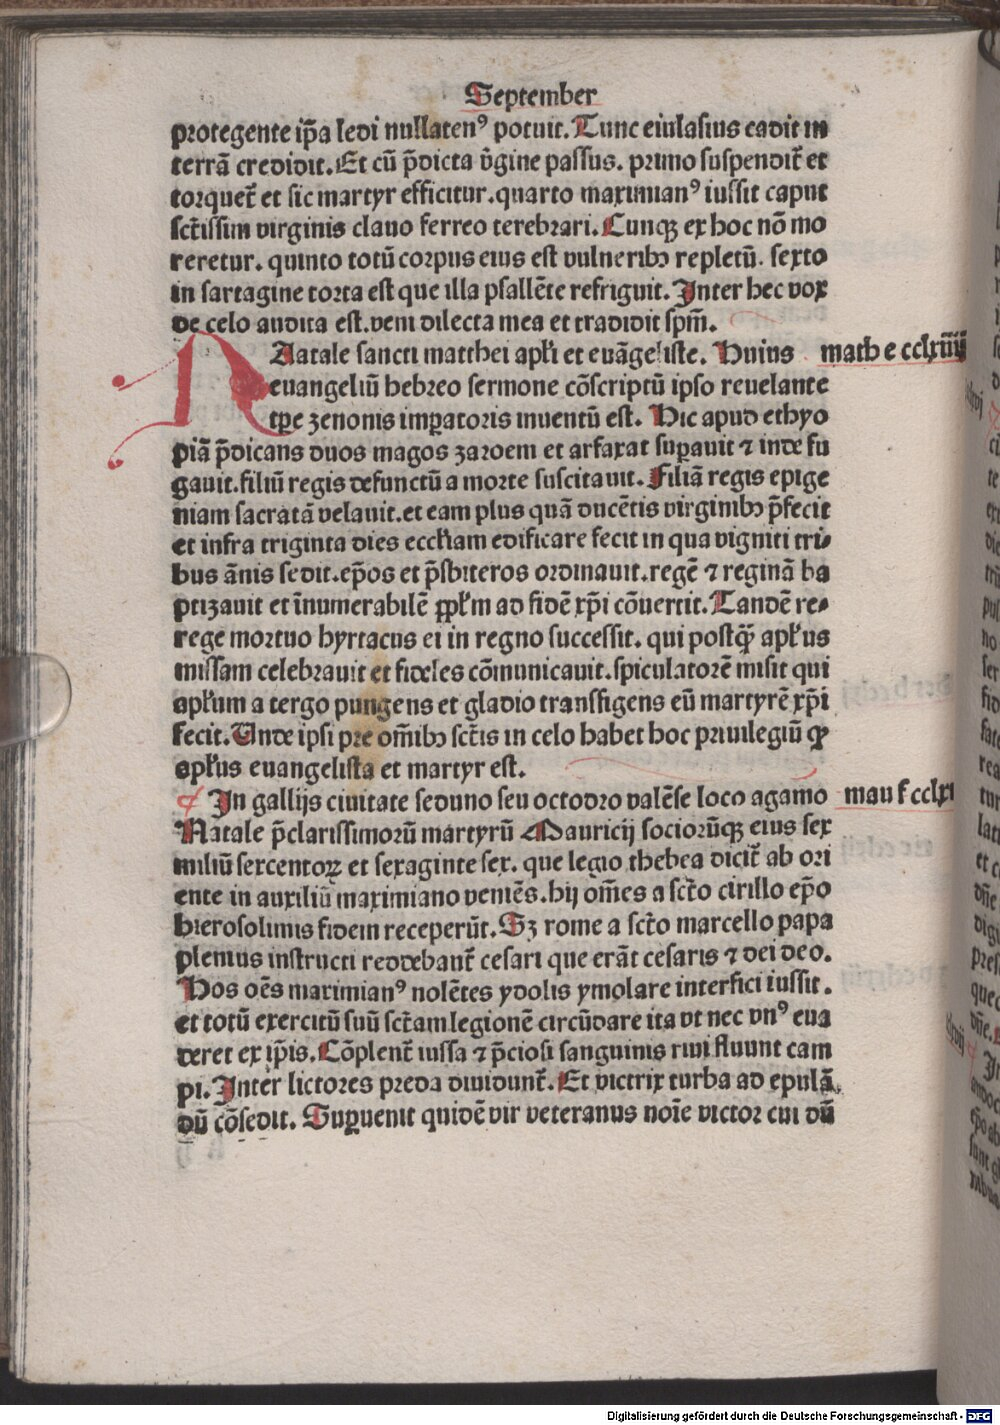 September
protegente ip̄a ledi nullatenꝰ potuit. Tunc eiulasius cadit in
terrā credidit. Et cū p̄dicta v̄gine passus. primo suspendit᷑ et
torquet᷑ et sic martyr efficitur. quarto maximianꝰ iussit caput
sct̄issim virginis clauo ferreo terebrari. Cunqꝫ ex hoc nō mo
reretur. quinto totū corpus eius est vulneribꝫ repletū. sexto
in sartagine torta est que illa psallēte refriguit. Inter hec vox
de celo audita est. veni dilecta mea et tradidit spm̄.
Natale sancti matthei apl̄i et euāgeliste. Huius
math e cclxiiij
euangeliū hebreo sermone cōscriptū ipso reuelante
tꝑe zenonis imꝑatoris inuentū est. Hic apud ethyo
piā p̄dicans duos magos zaroem et arfaxat suꝑauit ⁊ inde fu
gauit. filiū regis defunctū a morte suscitauit. Filiā regis epige
niam sacratā velauit. et eam plus quā ducētis virginibꝫ p̄fecit
et infra triginta dies eccl̄iam edificare fecit in qua viginti tri-
bus ānis sedit. ep̄os et p̄sbiteros ordinauit. regē ⁊ reginā ba
ptizauit et īnumerabilē ꝓpl̄m ad fidē xp̄i cōuertit. Tandē re-
rege mortuo hyrtacus ei in regno successit. qui postꝙ̄ apl̄us
missam celebrauit et fideles cōmunicauit. spiculatorē misit qui
apl̄um a tergo pungens et gladio transfigens eū martyrē xp̄i
fecit. Unde ipsi pre om̄ibꝫ sct̄is in celo habet hoc priuilegiū ꝙ
apl̄us euangelista et martyr est.
In gallijs ciuitate seduno seu octodro valēse loco agamo
mau f cclx
Natale p̄clarissimorū martyrū Mauricij sociorūqꝫ eius sex
miliū sexcentoꝝ et sexaginte sex. que legio thebea dicit᷑ ab ori
ente in auxiliū maximiano veniēs. hij om̄es a sct̄o cirillo ep̄o
hierosolimis fidem receperūt. Sꝫ rome a sct̄o marcello papa
plenius instructi reddebant᷑ cesari que erāt cesaris ⁊ dei deo.
Hos oēs maximianꝰ nolētes ydolis ymolare interfici iussit.
et totū exercitū suū sct̄am legionē circūdare ita vt nec vnꝰ eua
deret ex ip̄is. Cōplent᷑ iussa ⁊ p̄ciosi sanguinis riui fluunt cam
pi. Inter lictores preda diuidunt᷑. Et victrix turba ad epulā
dū cōsedit. Suꝑuenit quidē vir veteranus noīe victor cui dū
Digitalisierung gefördert durch die Deutsche Forschungsgemeinschaft - DFG